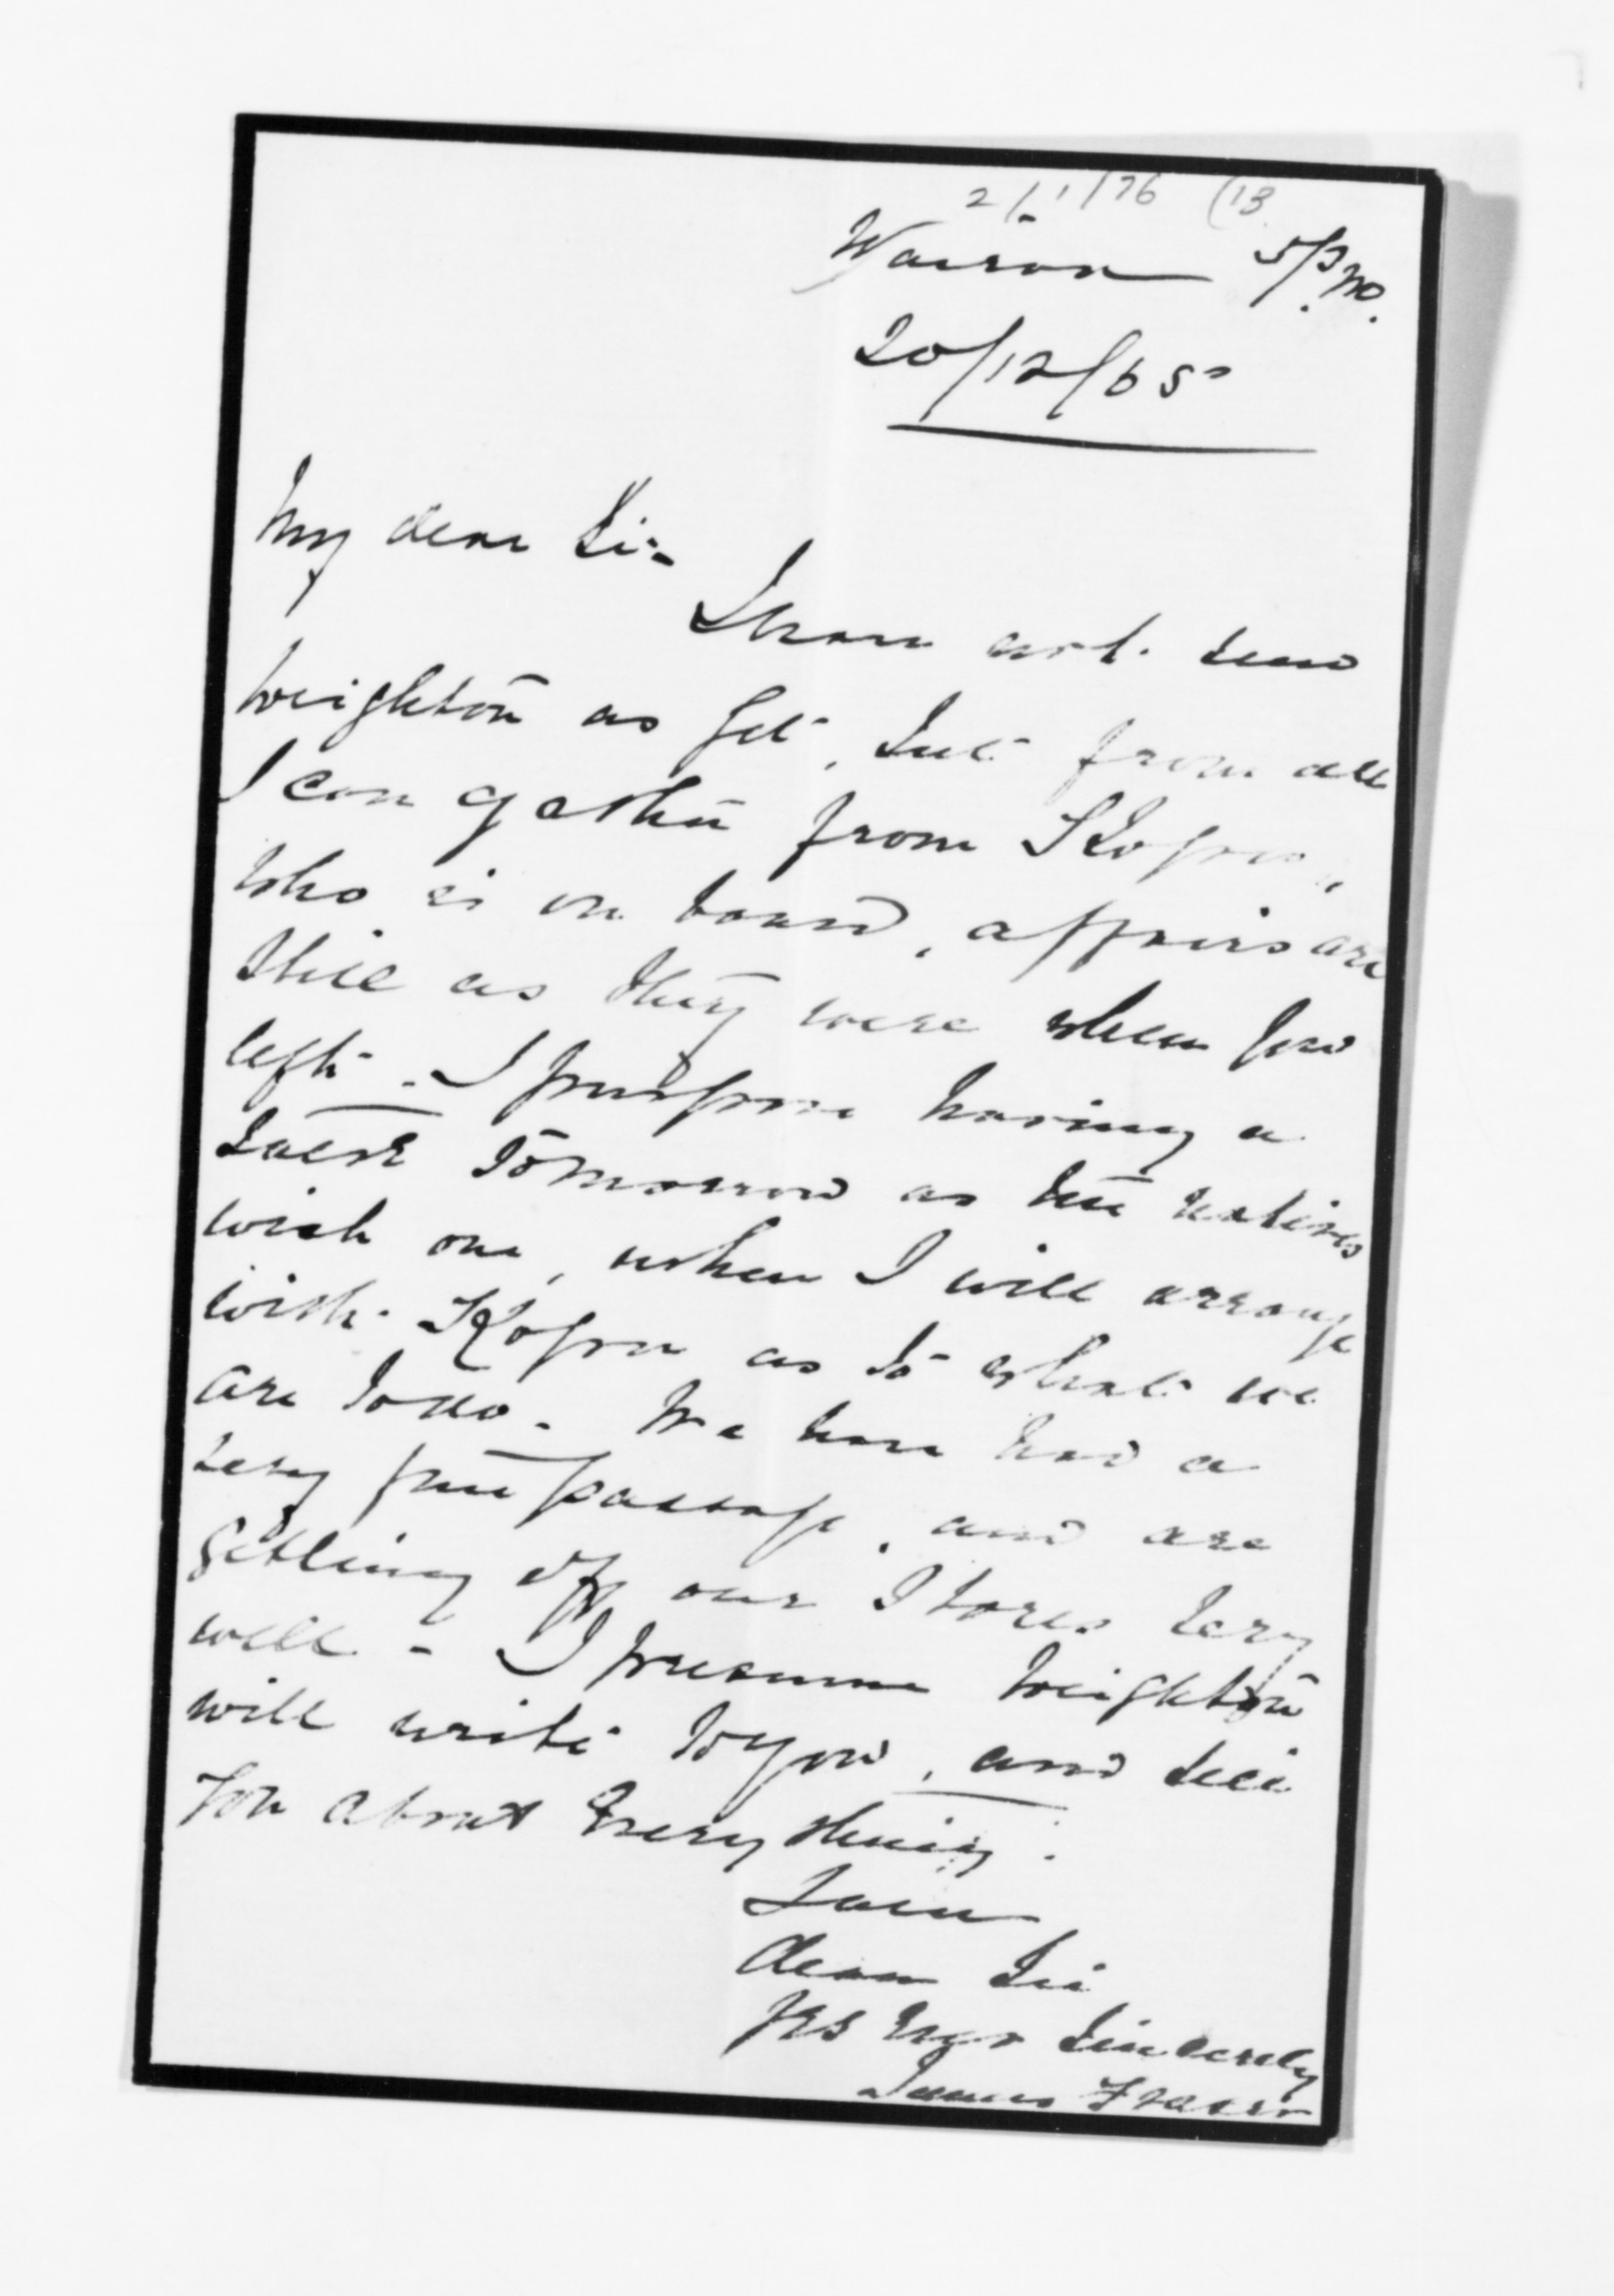 2/1/76 (13
Wairoa 5 p.m.
20/12/65
My dear Sir
I have not seen
Weighton as yet, but from all
I can gather from Kopu,
who is on board, affairs are
still as they were when you
left. I purpose having a
talk tomorrow as the natives
wish one, when I will arrange
with Kopu as to what we
are to do. We have had a
very fine passage, and are
getting off our stores very
well - I presume Weighton
will write to you, and tell
you about everything.
I am
dear Sir
yrs ever sincerely
James Fraser